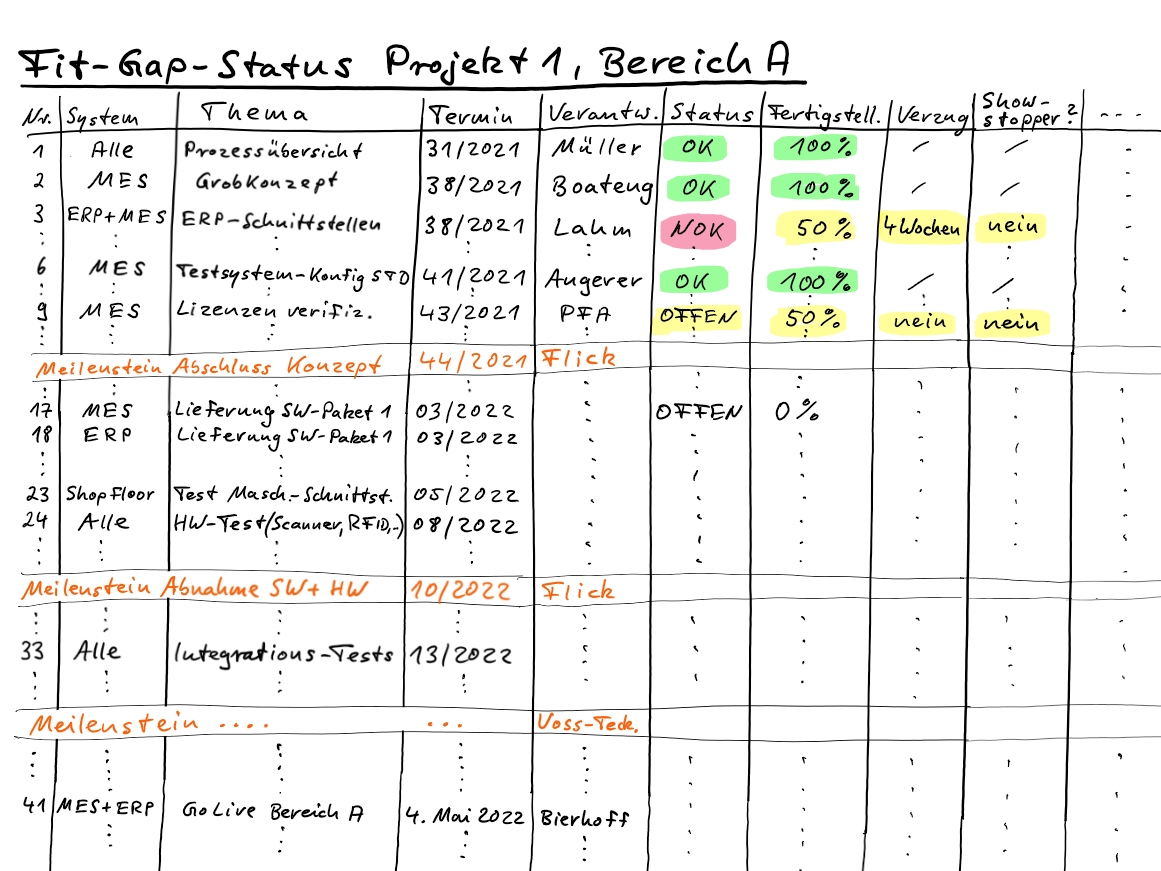 Fit-Gap-Status Projekt 1, Bereich A
Nr. System Thema Termin Verantw. Status Fertigstell. Verzug Show-stopper? ---
1 Alle Prozessübersicht 31/2021 Müller OK 100% / /
2 MES Grobkonzept 38/2021 Boateng OK 100% / /
3 ERP+MES ERP-Schnittstellen 38/2021 Lahm NOK 50% 4 Wochen nein
6 MES Testsystem-Konfig STD 41/2021 Angerer OK 100% / /
9 MES Lizenzen verifiz. 43/2021 PFA OFFEN 50% nein nein
Meilenstein Abschluss Konzept 44/2021 Flick
17 MES Lieferung SW-Paket 1 03/2022 OFFEN 0%
18 ERP Lieferung SW-Paket 1 03/2022
23 Shopfloor Test Masch.-Schnittst. 05/2022
24 Alle HW-Test (Scanner, RFID,..) 08/2022
Meilenstein Abnahme SW+HW 10/2022 Flick
33 Alle Integrations-Tests 13/2022
Meilenstein .... ... Voss-Teck.
41 MES+ERP GoLive Bereich A 4. Mai 2022 Bierhoff